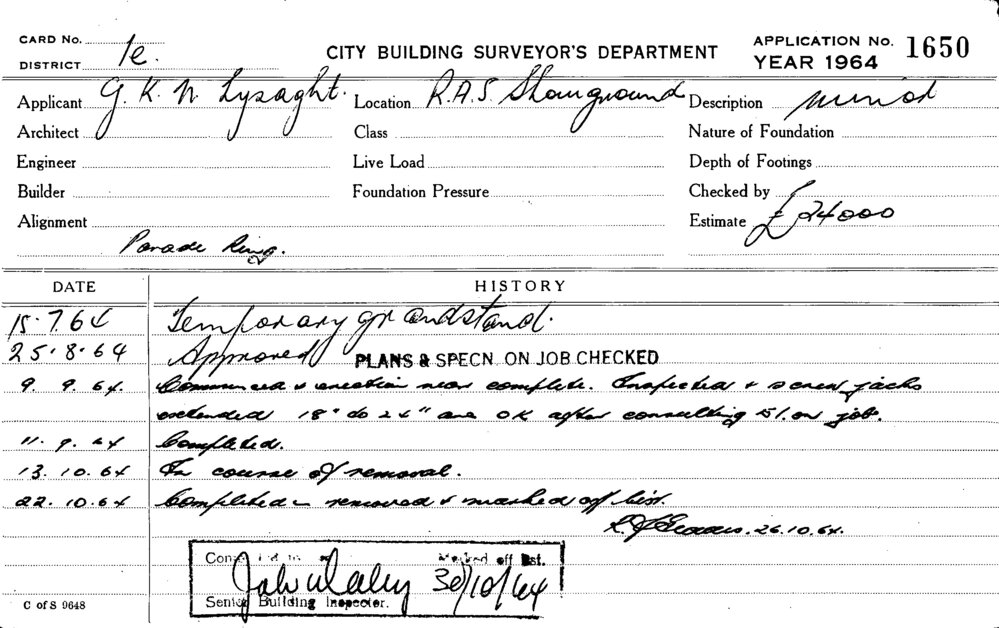 CARD No.
DISTRICT 1e.
CITY BUILDING SURVEYOR'S DEPARTMENT
APPLICATION No. 1650
YEAR 1964
Applicant G. K. N. Lysaght. Location R.A.S. Showground Description minor
Architect Class Nature of Foundation
Engineer Live Load Depth of Footings
Builder Foundation Pressure Checked by
Alignment Estimate £24000
Parade Ring.
DATE HISTORY
15.7.64 Temporary grandstand.
25.8.64 Approved PLANS & SPECN. ON JOB CHECKED
9. 9. 64. Commenced & erection near complete. Inspected & screw jacks
extended 18" to 24" are OK after consulting on job.
11. 9. 64 Completed.
13. 10. 64 In course of removal.
22. 10. 64 Completed removed & marked off list.
26.10.64.
Marked off list.
30/10/64
Senior Building Inspector.
C of S 9648